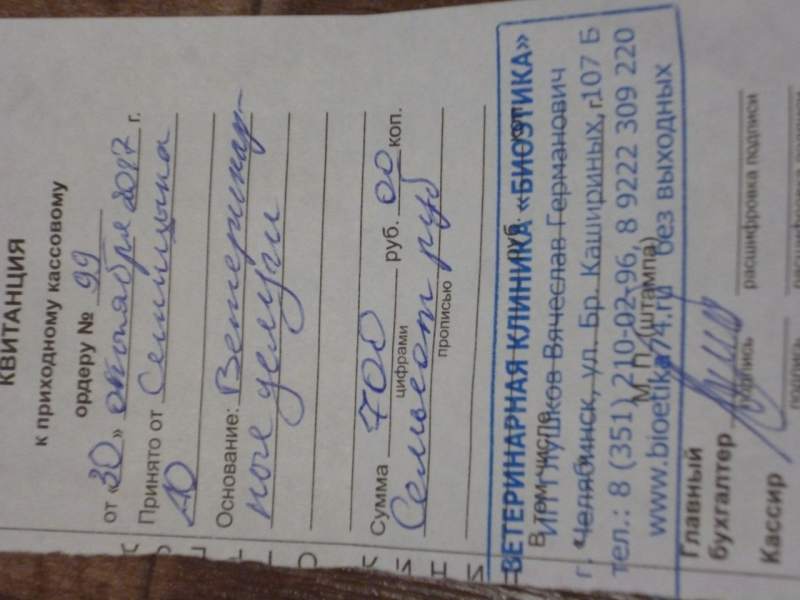 КВИТАНЦИЯ
к приходному кассовому
ордеру № 99
от «30» октября 2017 г.
Принято от Сеницына
ДО
Основание: Ветеринар-
ные услуги
Сумма 700 руб. 00 коп.
цифрами
Семьсот руб
прописью
В том числе
руб. коп.
ВЕТЕРИНАРНАЯ КЛИНИКА «БИОЭТИКА»
ИП Лушков Вячеслав Германович
г. Челябинск, ул. Бр. Кашириных, 107 Б
тел.: 8 (351) 210-02-96, 8 9222 309 220
www.bioetika74.ru без выходных
М.П. (штампа)
Главный
бухгалтер
подпись расшифровка подписи
Кассир
подпись расшифровка подписи